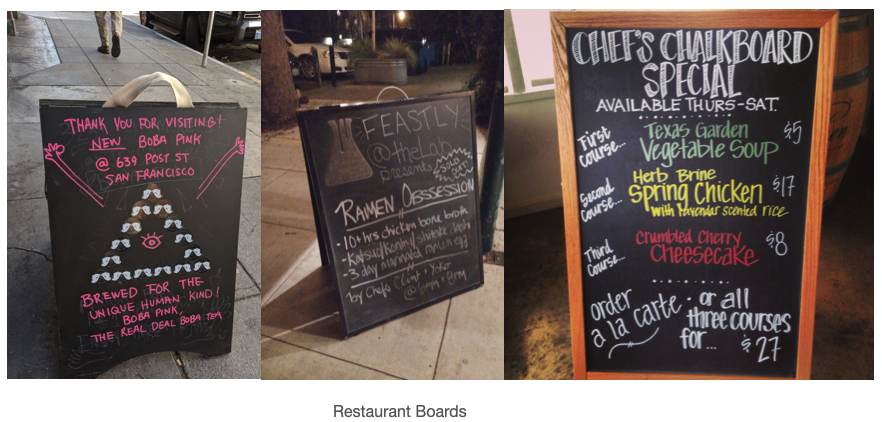 THANK YOU FOR VISITING!
NEW BOBA PINK
@ 639 POST ST
SAN FRANCISCO
BREWED FOR THE
UNIQUE HUMAN KIND!
BOBA PINK,
THE REAL DEAL BOBA TEA
FEASTLY
@theLab
presents
SOLD OUT
RAMEN OBSSESSION
-10+hrs chicken bone broth
-Katsuo/Konbu/shiitake dashi
-3 day marinated ramen egg
by Chefs Clint + Yoko
@ 6pm + 8pm
CHEF'S CHALKBOARD
SPECIAL
AVAILABLE THURS-SAT.
First Course...
Texas Garden
Vegetable Soup $5
Second Course...
Herb Brine
Spring Chicken $17
with lavendar scented rice
Third Course...
Crumbled Cherry
Cheesecake $8
order
a la carte · or all
three courses
for... $27
Restaurant Boards